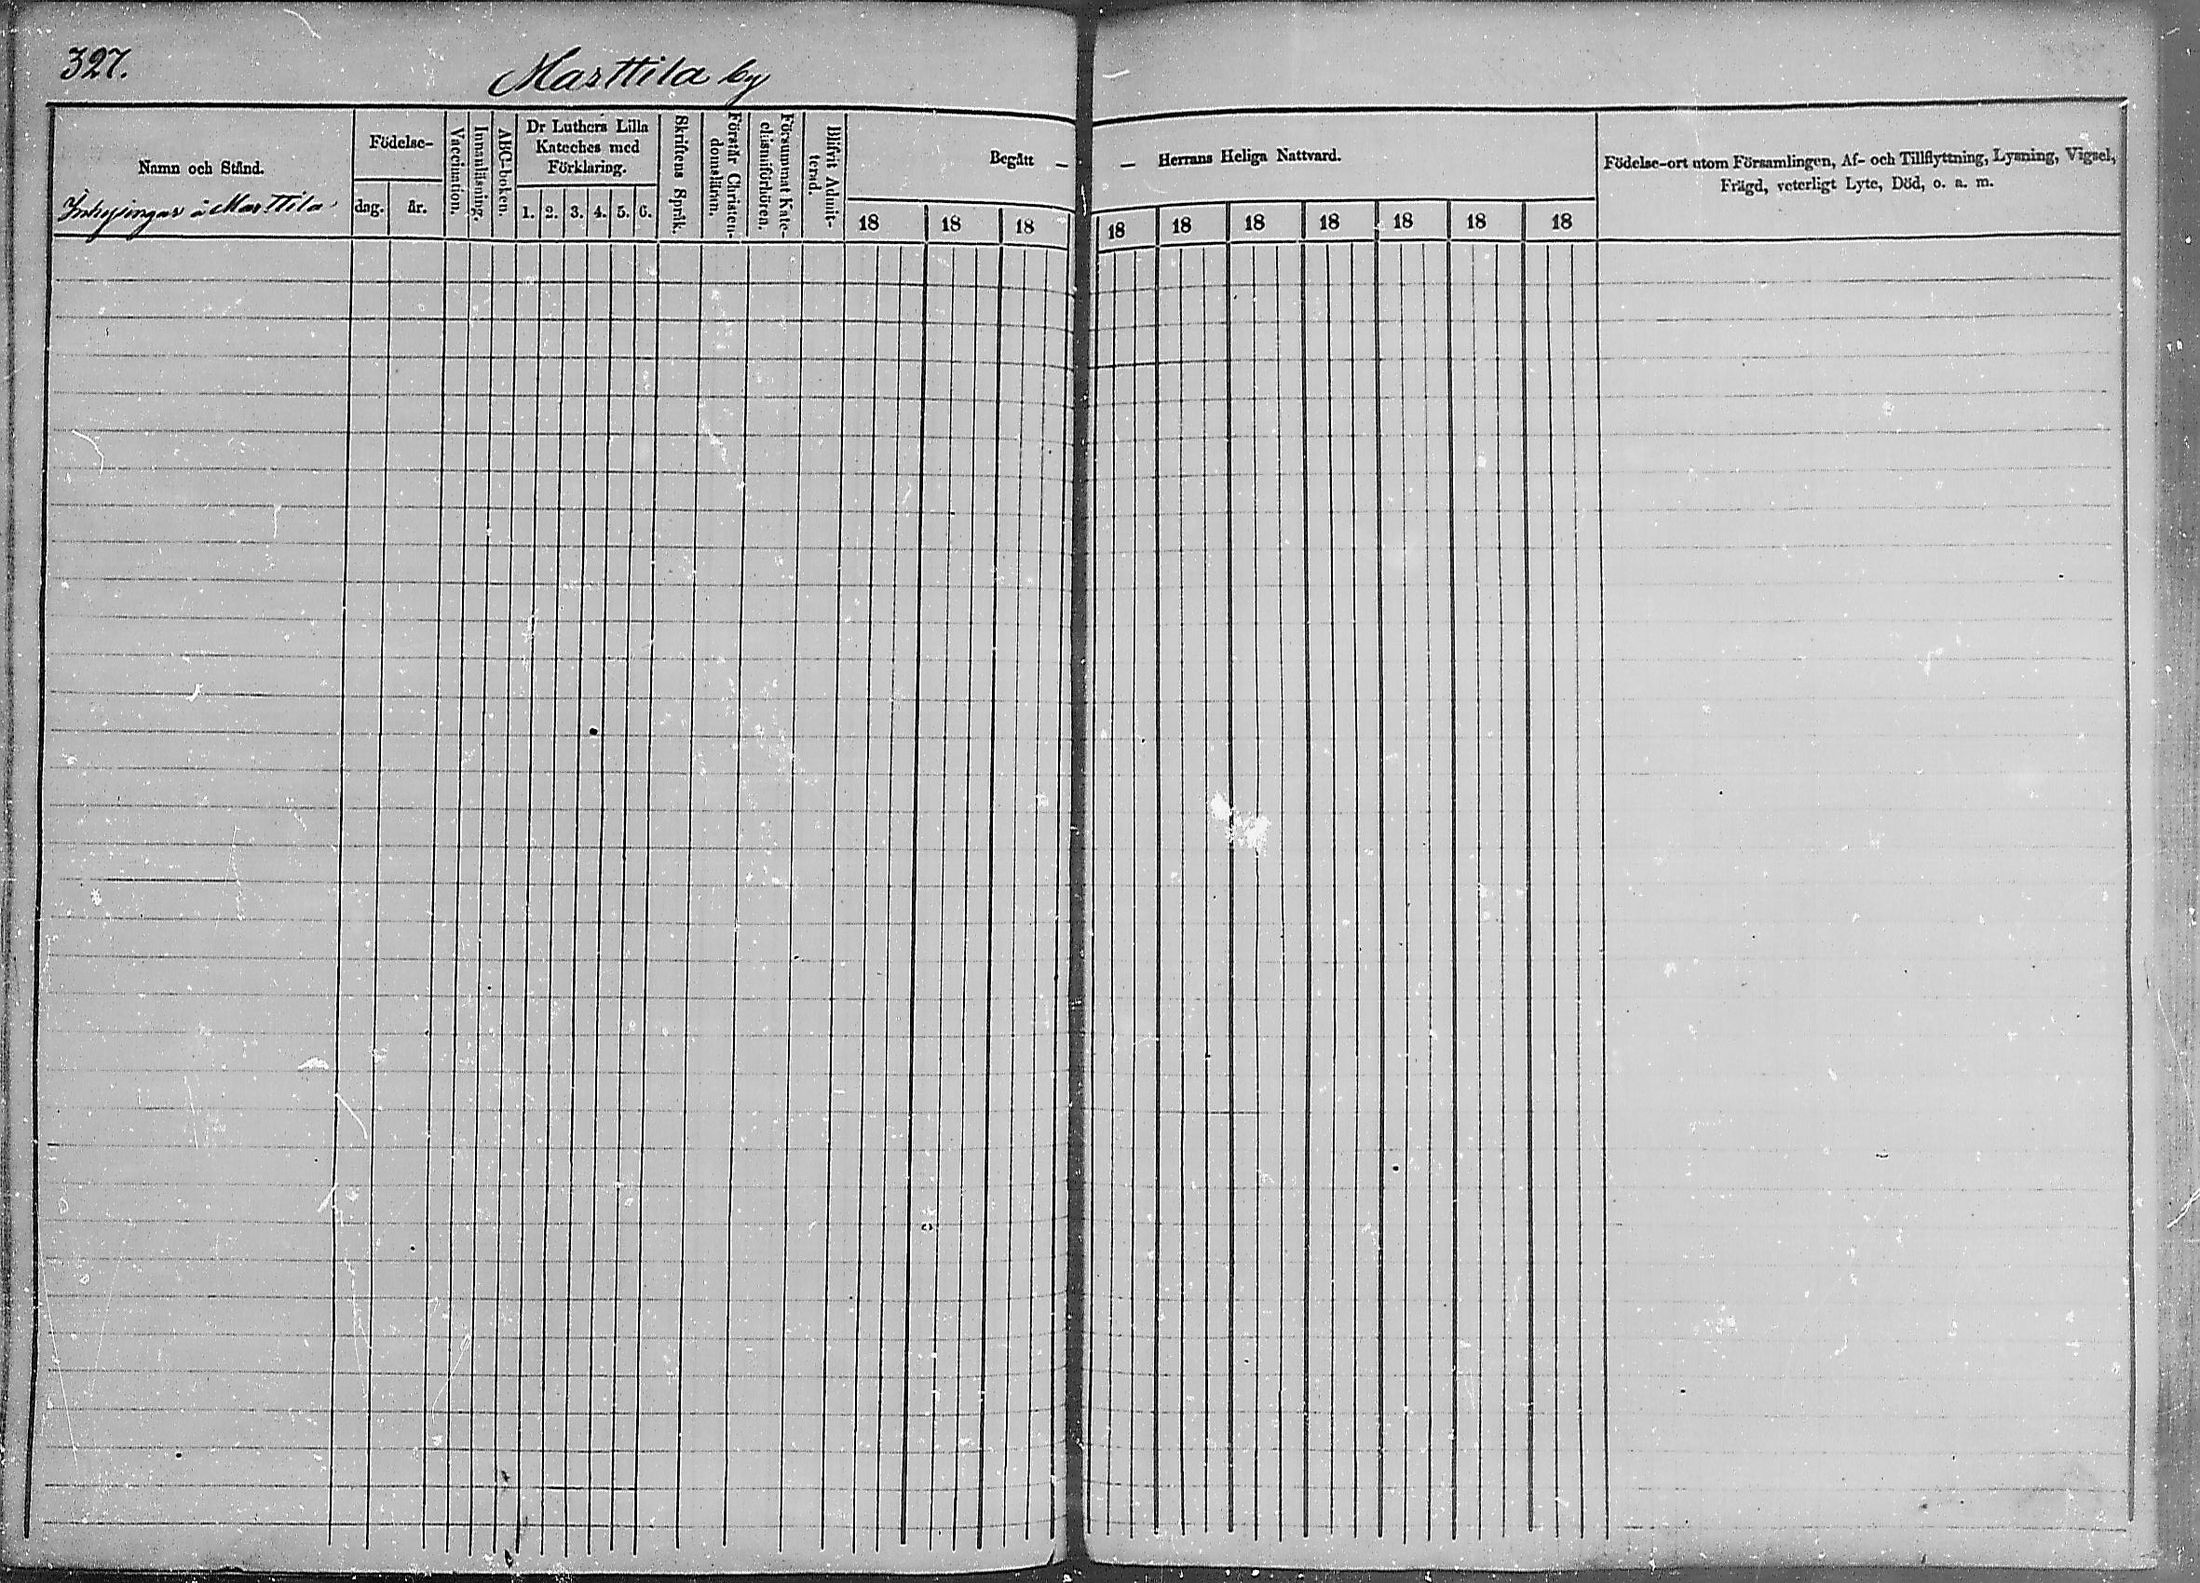 327.
Marttila by
Namn och Stånd.
Inhysingar å Marttila
Födelse-
dag.
år.
Vaccination.
Innanläsning.
ABC-boken.
Dr Luthers Lilla
Kateches med
Förklaring.
1. 2. 3. 4. 5. 6.
Skriftens Språk.
Förstår Christen-
domslären.
Försummat Kate-
chismiförhören.
Blifvit Admit-
terad.
Begått —
18 18 18
— Herrans Heliga Nattvard.
18 18 18 18 18 18 18
Födelse-ort utom Församlingen, Af- och Tillflyttning, Lysning, Vigsel,
Frägd, veterligt Lyte, Död, o. a. m.